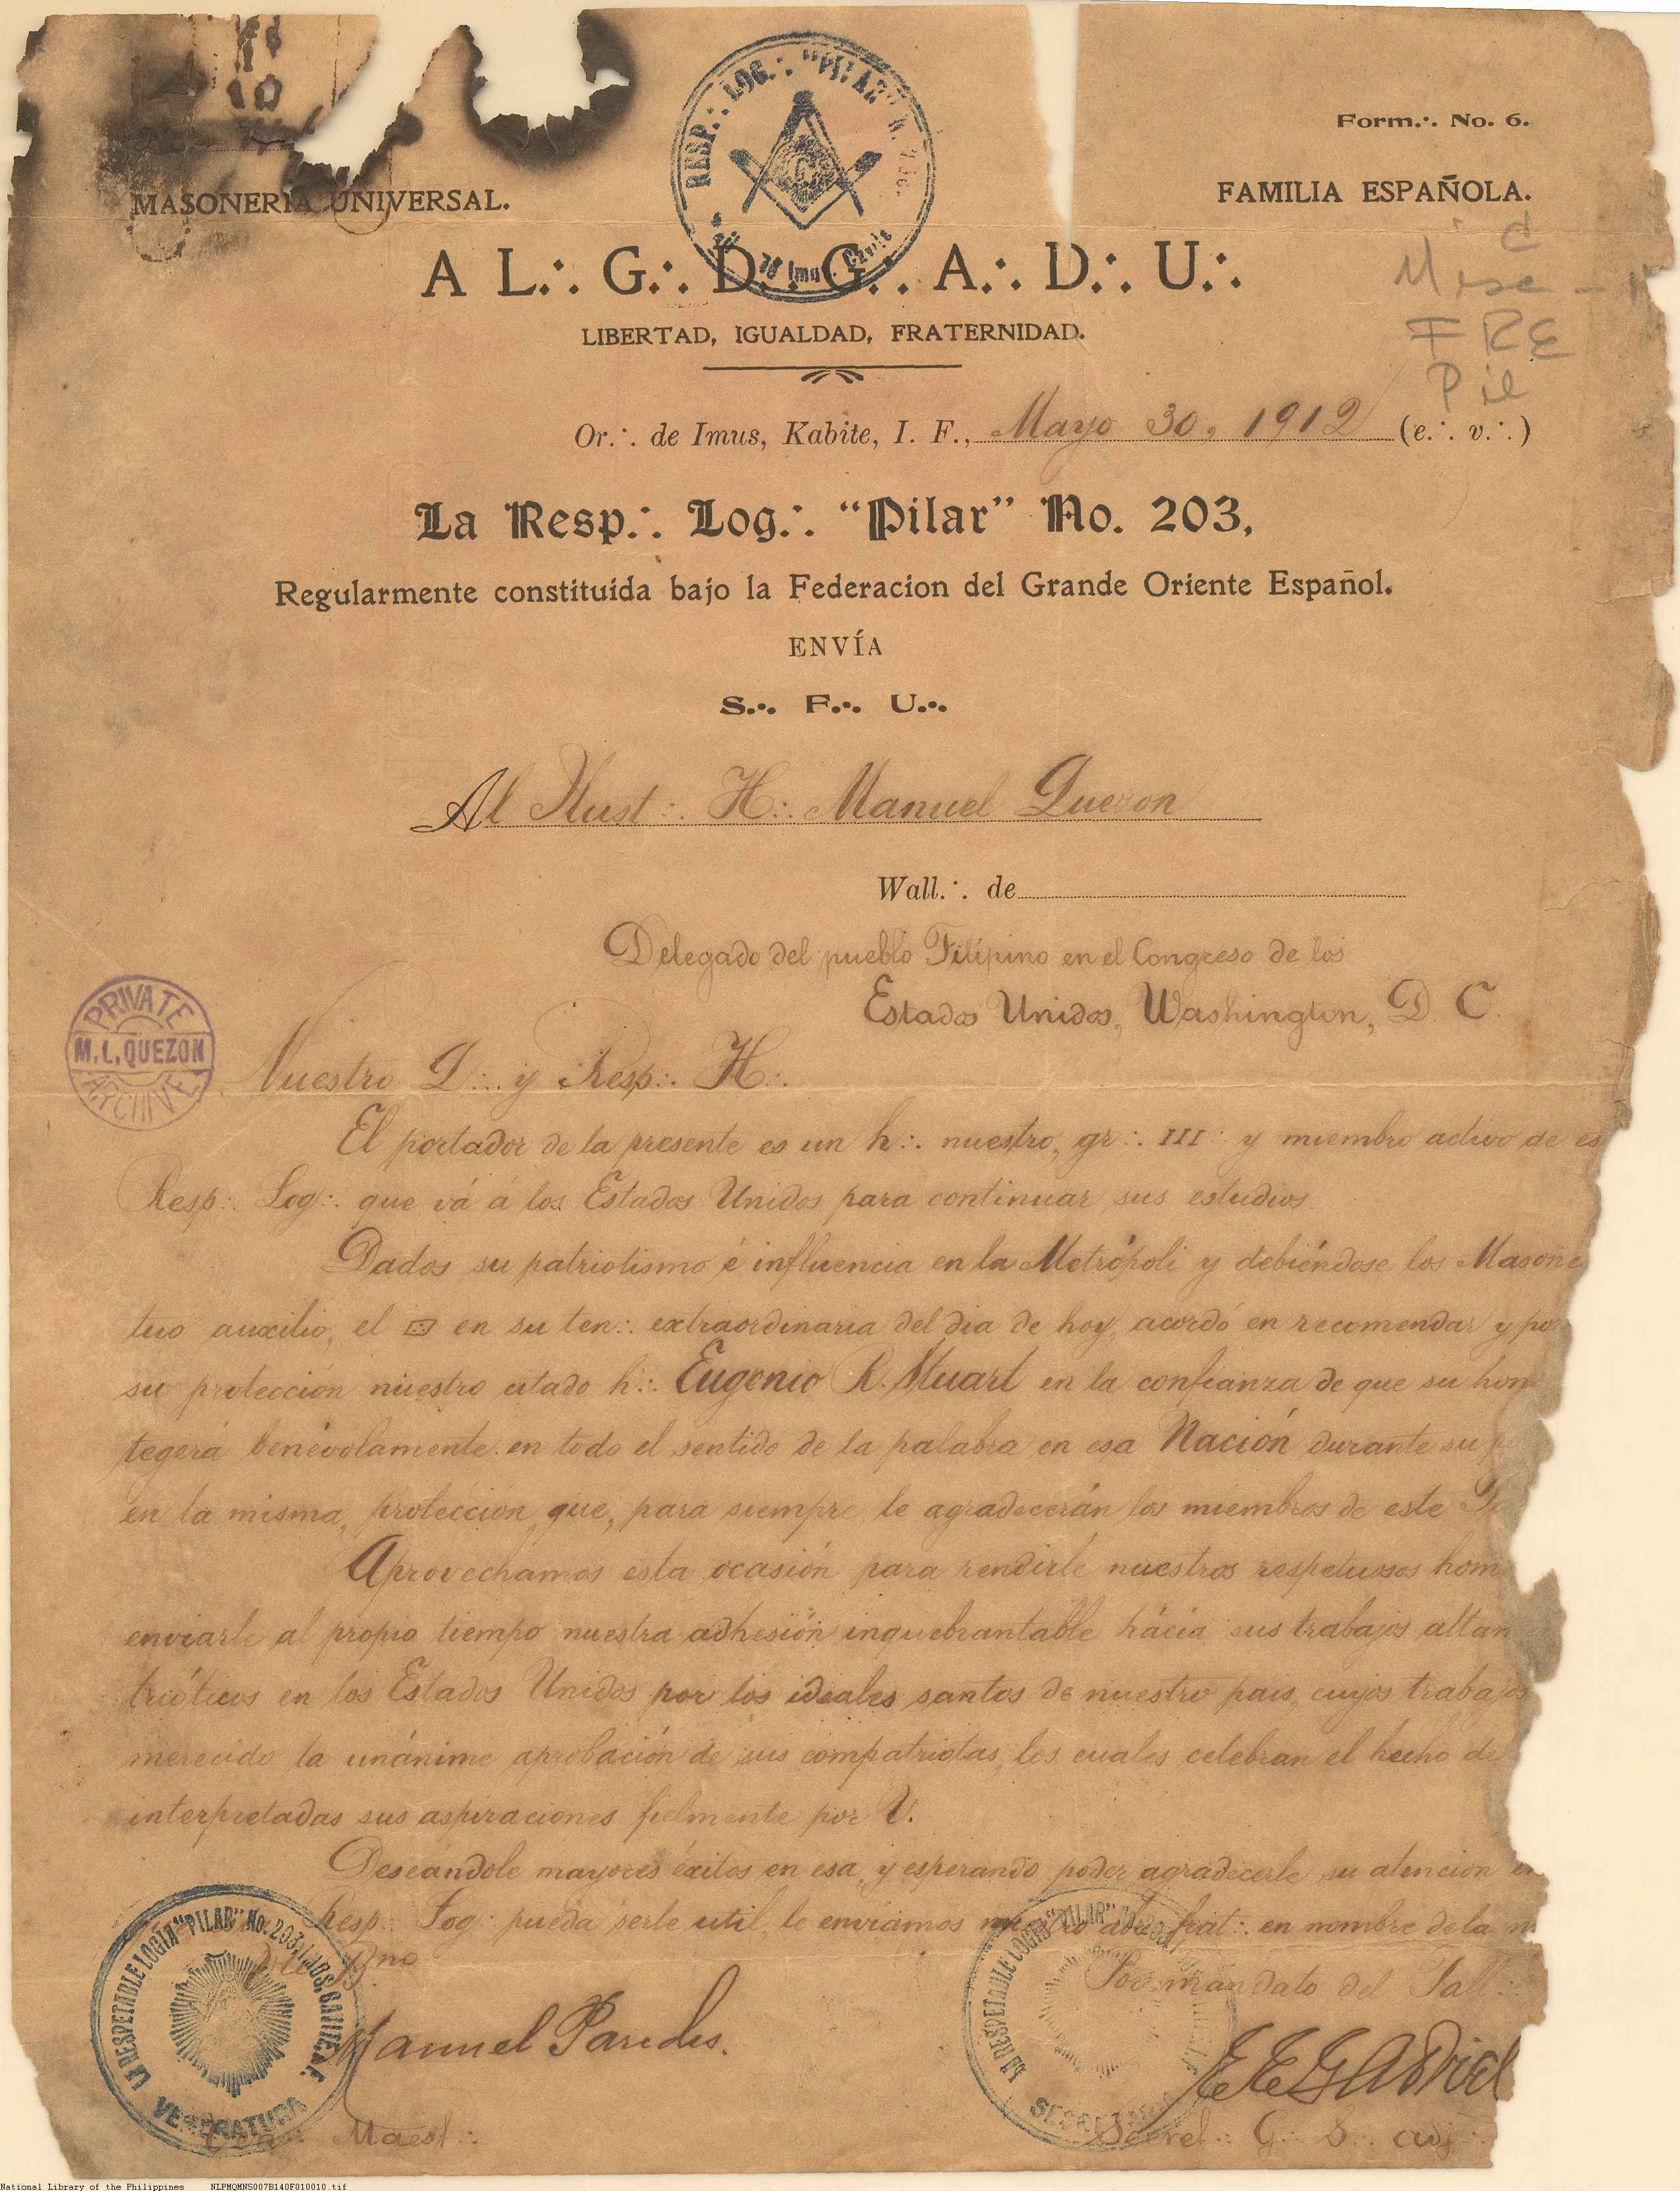 RESP.: LOG.: "PILAR"
Form.·. No. 6.
MASONERIA UNIVERSAL.
FAMILIA ESPAÑOLA.
A L.·. G.·. D.·. G.·. A.·. D.·. U.·.
Misc
FRE
Pil
LIBERTAD, IGUALDAD, FRATERNIDAD.
Or.·. de Imus, Kabite, I. F., Mayo 30, 1912 (e.·. v.·.)
La Resp.·. Log.·. "Pilar" No. 203,
Regularmente constituida bajo la Federacion del Grande Oriente Español.
ENVÍA
S.·. F.·. U.·.
Al Ilust.·. H.·. Manuel Quezon
Wall.·. de
Delegado del pueblo Filipino en el Congreso de los
Estados Unidos, Washington, D. C.
PRIVATE
M.L.QUEZON
ARCHIVE
Nuestro Q.·. y Resp.·. H.·.
El portador de la presente es un h.·. nuestro, gr.·. III y miembro activo de es
Resp.·. Log.·. que vá á los Estados Unidos para continuar sus estudios.
Dados su patriotismo é influencia en la Metrópoli y debiéndose los Masone
tuo auxilio, el en su ten.·. extraordinaria del dia de hoy, acordó en recomendar y
su protección nuestro citado h.·. Eugenio R. Stuart en la confianza de que su
tegerá benévolamente en todo el sentido de la palabra en esa Nación durante su
en la misma, protección que, para siempre le agradecerán los miembros de este
Aprovechamos esta ocasión para rendirle nuestros respetuosos hom
enviarle al propio tiempo nuestra adhesión inquebrantable hácia sus trabajos altan
trióticos en los Estados Unidos por los ideales santos de nuestro pais, cuyos trabajos
merecido la unánime aprobación de sus compatriotas, los cuales celebran el hecho de
interpretadas sus aspiraciones fielmente por V.
Deseándole mayores éxitos en esa, y esperando poder agradecerle su atención en
Resp.·. Log.·. pueda serle util, le enviamos nuestro abr.·. frat.·. en nombre de la
Por mandato del Tall.·.
LA RESPETABLE LOGIA "PILAR" No. 203, I. MUS, CAVITE, I.F.
VENERATURA
Manuel Paredes.
LA RESPETABLE LOGIA "PILAR" No. 203
SECRETARIA
Ven.·. Maest.·.
Secret.·. G.·. S.·.
National Library of the Philippines NLPMQMNS007B140F010010.tif